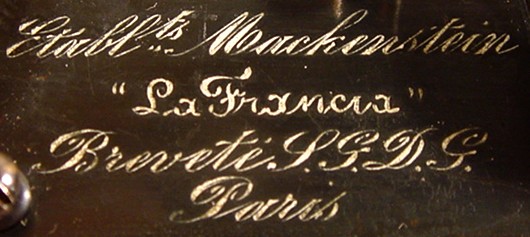 Etabl.ts Mackenstein
"La Francia"
Breveté S.G.D.G.
Paris